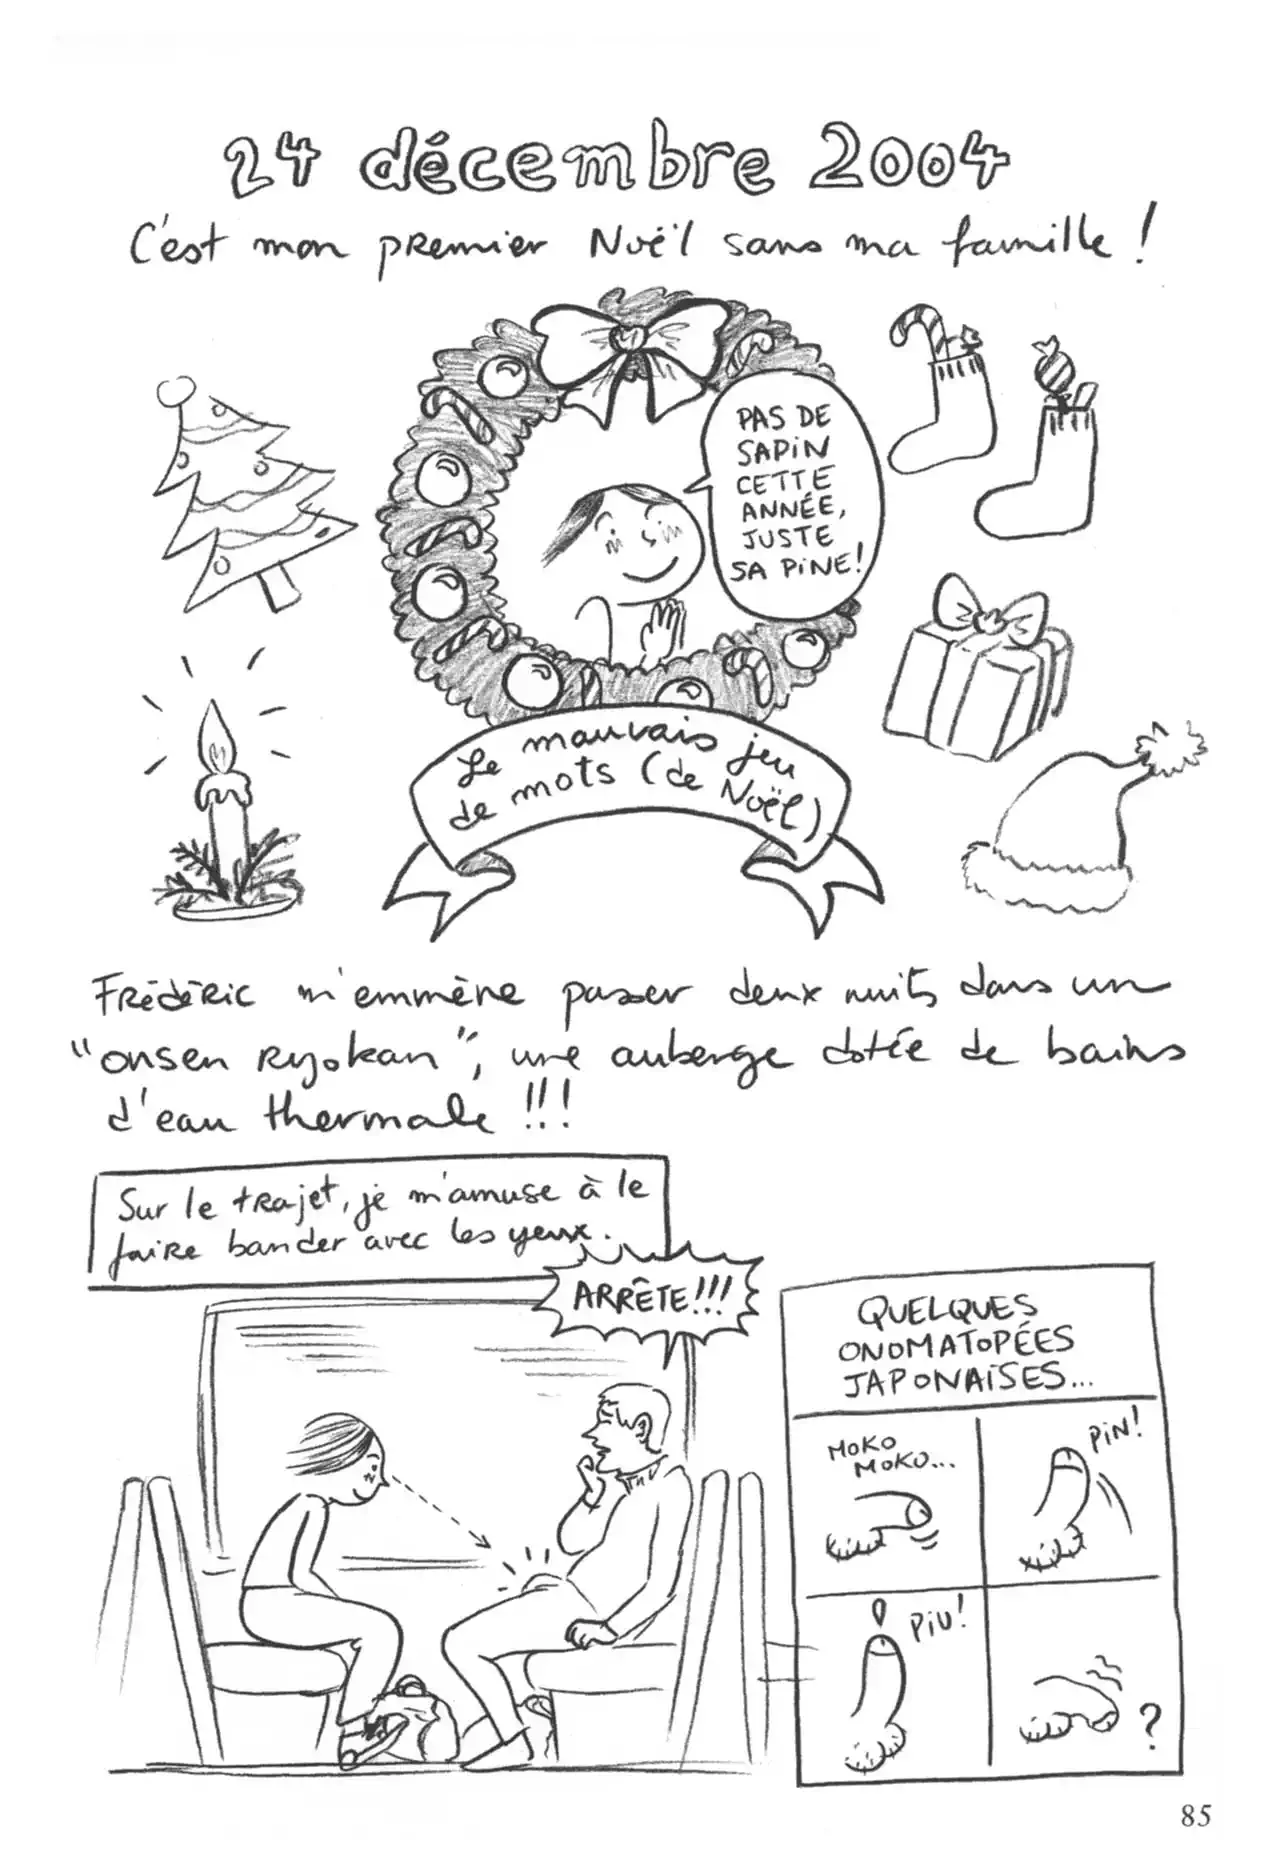 24 décembre 2004
C'est mon premier Noël sans ma famille !
PAS DE
SAPIN
CETTE
ANNÉE,
JUSTE
SA PINE!
Le mauvais jeu
de mots (de Noël)
FRÉDÉRIC m'emmène passer deux nuits dans un
"onsen ryokan", une auberge dotée de bains
d'eau thermale !!!
Sur le trajet, je m'amuse à le
faire bander avec les yeux.
ARRÊTE!!!
QUELQUES
ONOMATOPÉES
JAPONAISES...
MOKO
MOKO...
PIN!
PIU!
?
85